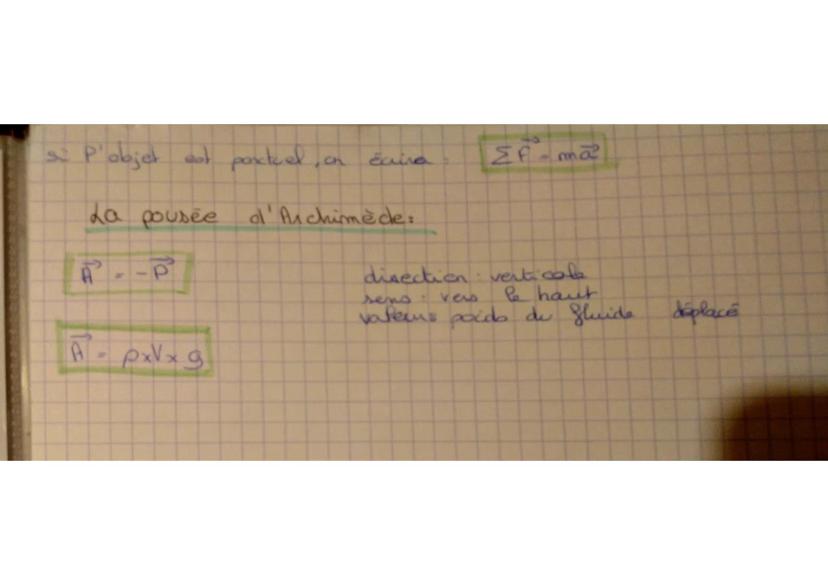 si l'objet est ponctuel, on écrira : Σ F⃗ = m a⃗
La pousée d'Archimède:
A⃗ = - P⃗
direction : verticale
sens : vers le haut
valeur : poids du fluide déplacé
A⃗ = ρ x V x g